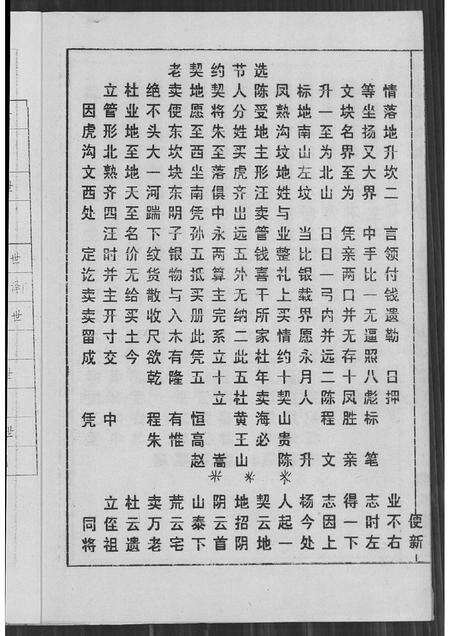 老契约节选
立杜绝卖地契人陈凤标升文等情
因管业不便愿将分受熟地一块坐落
虎形地头东至朱姓地沟南至名扬地
沟北至大坎西至买主坟山为界又升
文熟地一块坐落虎形地左北至大坎
西齐天河东南俱齐汪姓坟山为界二
处四至踹阴凭中出卖与
汪名下子孙永远管业当日凭中言
定时价纹银五两五钱整比日亲手领
讫并无货物抵算外喜礼银一两比付
卖主给散与买主无干上载弓口一钱
卖开买收入册完纳所买界内并无遗
留寸土尺木此系二家情愿并无逼勒
成交今欲有凭立此杜约永远存照
乾隆五十五年十月二十八日
立杜卖契人陈凤彪押
凭中 程有恒 黄海山 程胜标
朱惟高 王必贵
赵嵩山 陈升文亲笔
***
立杜卖荒山阴地契人杨志得志业
同侄云万云泰云招云起今因一时不使
将祖遗老宅下首阴地一处上下左右新